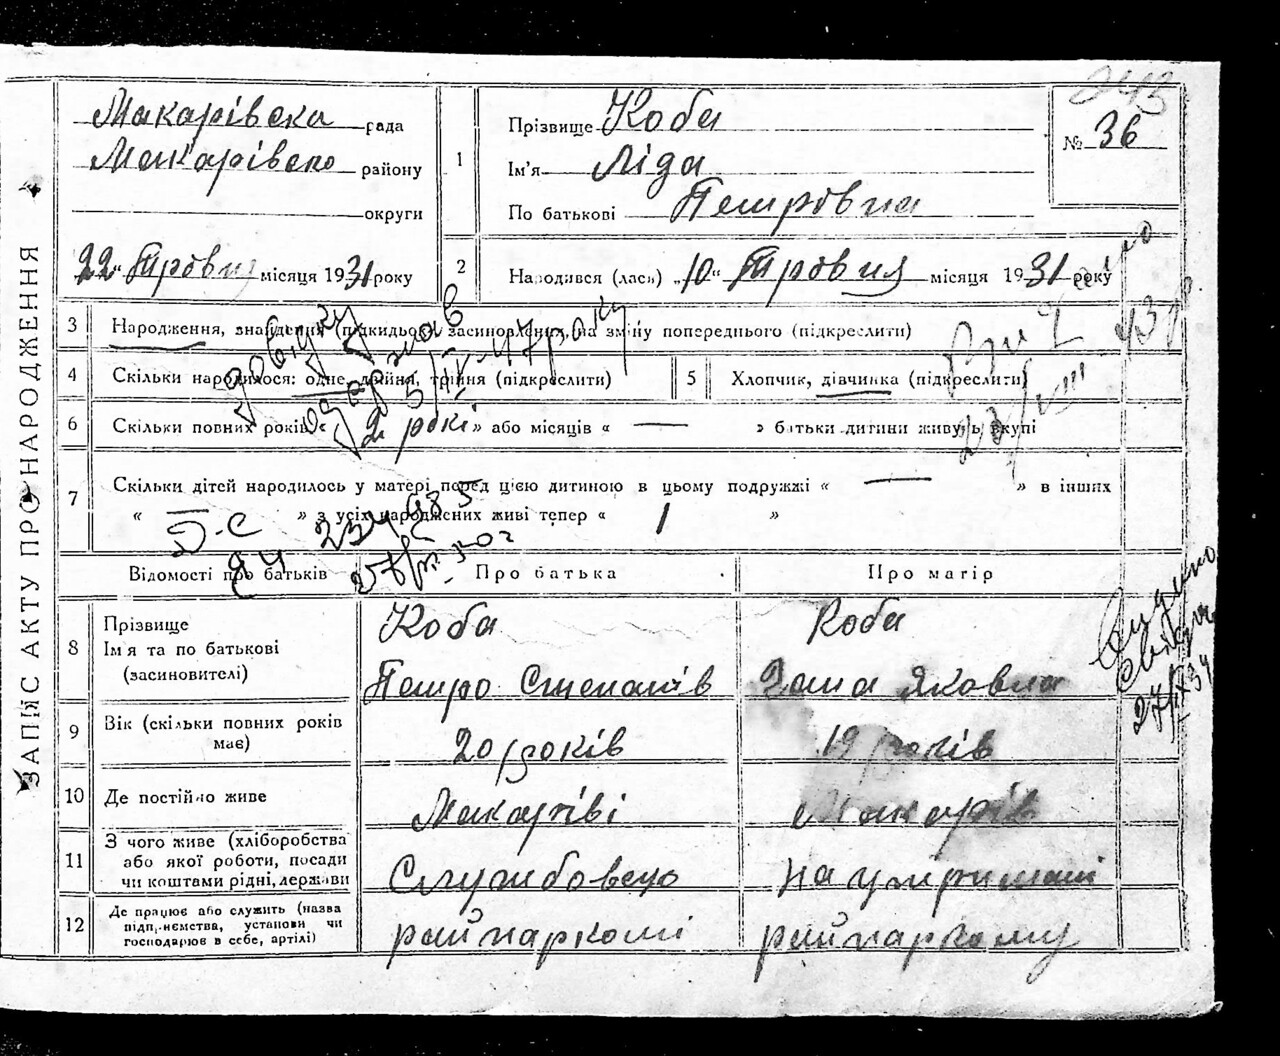 ЗАПИС АКТУ ПРО НАРОДЖЕННЯ
243
Макарівска рада
Макарівско району
округи
22 " Трівня місяця 1931 року
1
Прізвище Коба
Ім'я Ліда
По батькові Петрівна
№ 36
2
Народився (лась) 10 " Трівня місяця 1931 року
3 Народження, знайдення (підкидьою) засиновлення, на зміну попереднього (підкреслити)
4 Скільки народилося: одне, двійня, трійня (підкреслити)
5 Хлопчик, дівчинка (підкреслити)
6 Скільки повних років « 2 рокі » або місяців « — » батьки дитини живуть вкупі
7 Скільки дітей народилось у матері перед цією дитиною в цьому подружжі « — » в інших
« — » з усіх народжених живі тепер « 1 »
5/IV-47 року
23/VIII 43 р.
27/IX 34
Відомості про батьків
Про батька
Про матір
8 Прізвище
Ім'я та по батькові
(засиновителі)
Коба
Петро Степанів
Коба
Яковна
9 Вік (скільки повних років має)
20 років
19 років
10 Де постійно живе
Макарові
Макарів
11 З чого живе (хліборобства
або якої роботи, посади
чи коштами рідні, держави
Службовецю
на утриманні
12 Де працює або служить (назва
підприємства, установи чи
господарює в себе, артілі)
райпаркомі
райпаркому